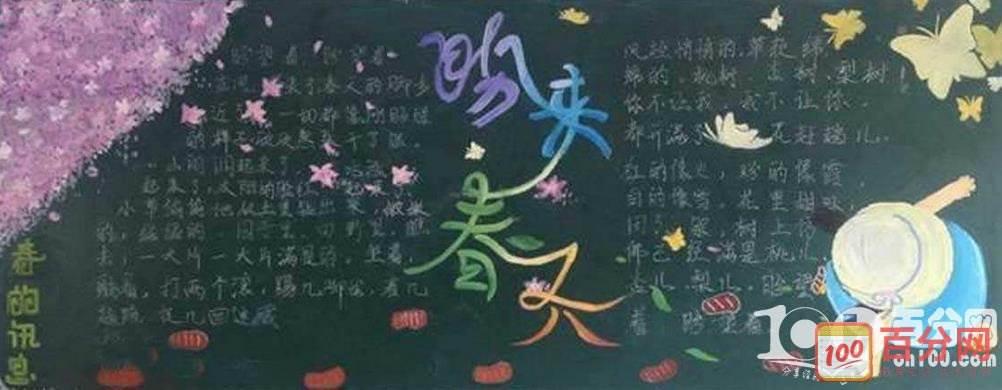 盼来春天
春的讯息
盼望着,盼望着
来了春天的脚步
近 一切都像刚睡醒
的样子欣欣然 开了眼。
山朗润起来了,
起来了,太阳的脸红
小草偷偷地从土里钻出来,嫩嫩
的,绿绿的 园子里,田野里,瞧
去,一大片一大片满是的。坐着,
躺着,打两个滚,踢几脚 ,赛几
趟跑,捉几回迷藏
风轻悄悄的,草软绵
绵的,桃树、杏树、梨树!
你不让我,我不让你,
都开满了 花赶趟儿。
红的像火,粉的像霞,
白的像雪。花里甜味,
闭了眼,树上仿
佛已经满是桃儿、
杏儿、梨儿,盼望
着 盼望着
100 百分网
cn100.com